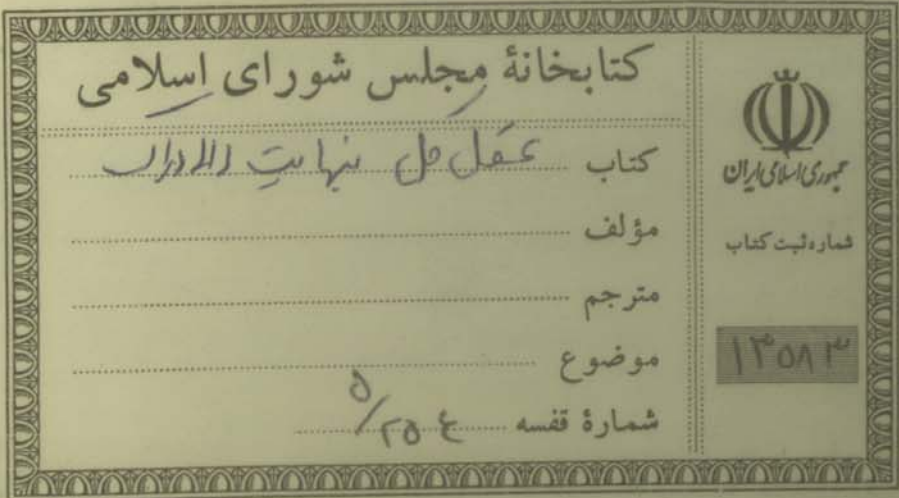 کتابخانهٔ مجلس شورای اسلامی
کتاب عقل کل نهایت
مؤلف
مترجم
موضوع
شمارهٔ قفسه
جمهوری اسلامی ایران
شماره ثبت کتاب
۱۳۵۸۳